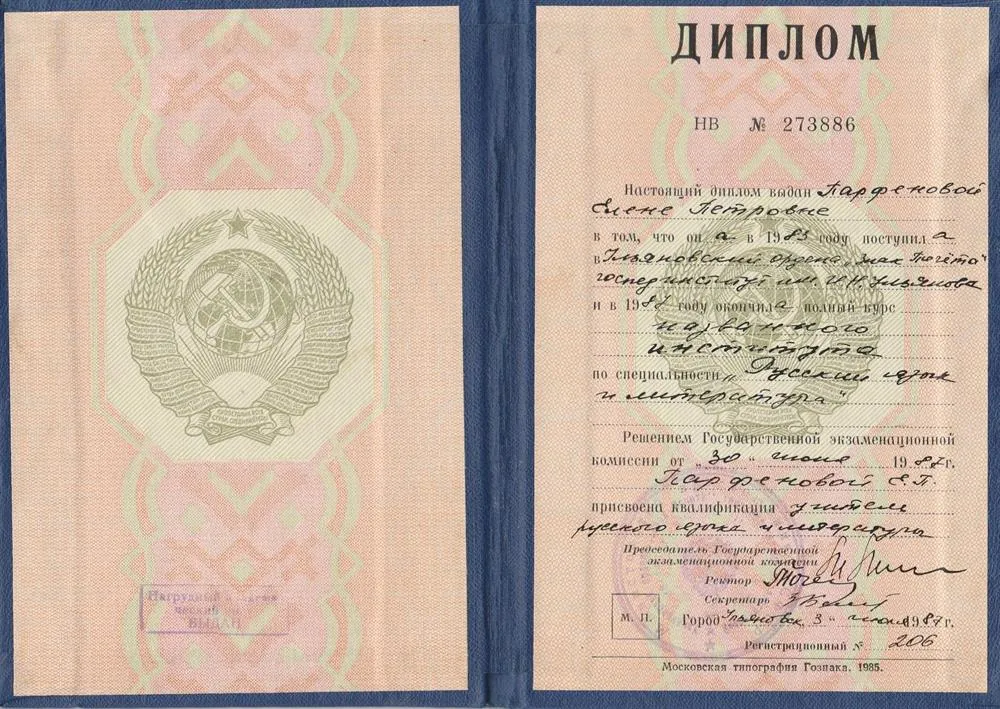 Нагрудный
ческий
ВЫДАН
ДИПЛОМ
НВ № 273886
Настоящий диплом выдан Парфеновой
Елене Петровне
в том, что он а в 1983 году поступил а
в Ульяновский ордена „Знак Почёта“
госпединститут им. И.Н. Ульянова
и в 1987 году окончил а полный курс
названного
института
по специальности „Русский язык
и литература“
Решением Государственной экзаменационной
комиссии от „30“ июня 1987г.
Парфеновой Е.П.
присвоена квалификация учителя
русского языка и литературы
Председатель Государственной
экзаменационной комиссии
Ректор
Секретарь
М. П. Город Ульяновск, 3“ июля 1987г.
Регистрационный № 206
Московская типография Гознака. 1985.